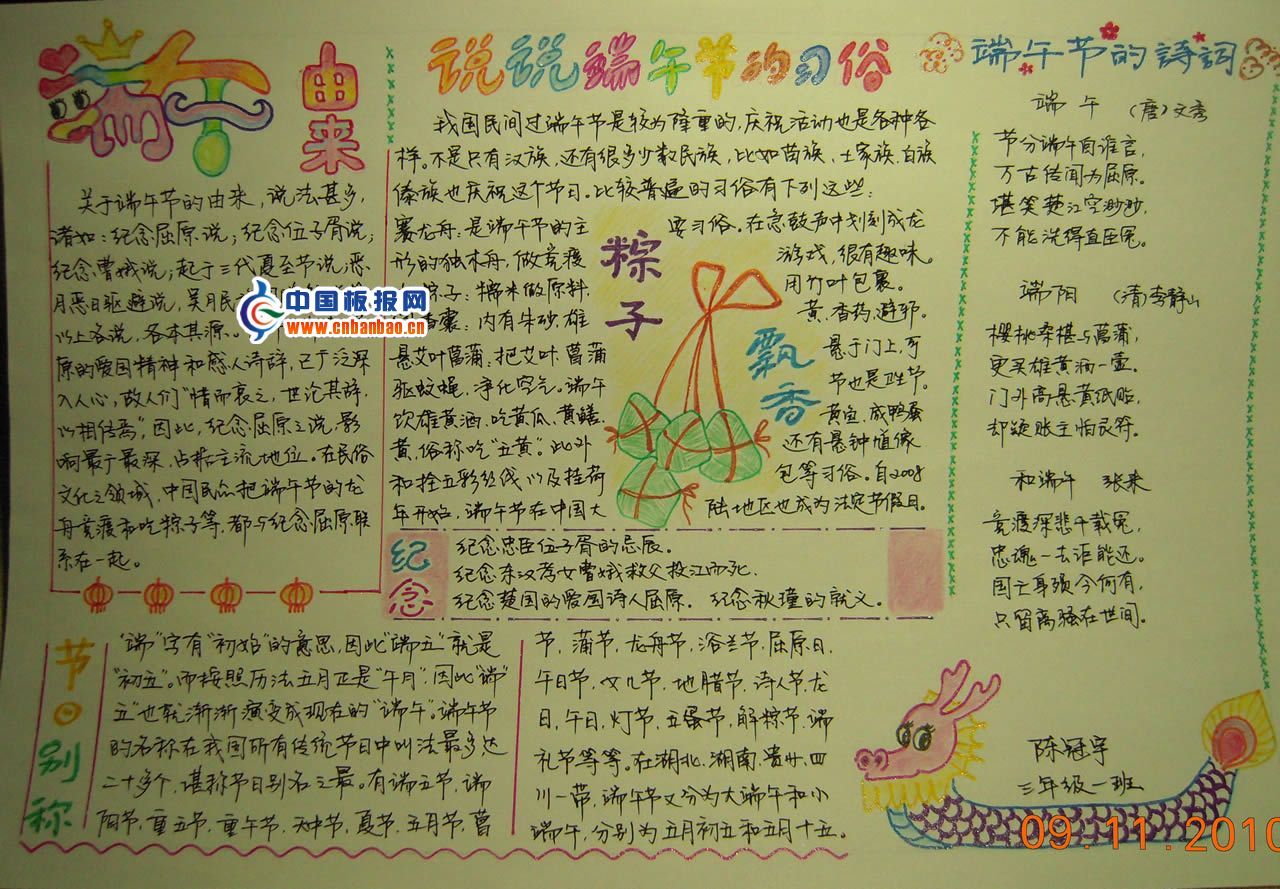 端午
由来
关于端午节的由来，说法甚多，
诸如：纪念屈原说；纪念伍子胥说；
纪念曹娥说；起于三代夏至节说；恶
月恶日驱避说，吴月民
以上各说，各本其源。
原的爱国精神和感人诗辞，已广泛深
入人心，故人们“惜而哀之，世论其辞，
以相传焉”，因此，纪念屈原之说，影
响最广最深，占据主流地位。在民俗
文化之领域，中国民众把端午节的龙
舟竞渡和吃粽子等，都与纪念屈原联
系在一起。
中国板报网
www.cnbanbao.cn
说说端午节的习俗
我国民间过端午节是较为隆重的，庆祝活动也是各种各
样。不是只有汉族，还有很多少数民族，比如苗族、土家族、白族
傣族也庆祝这个节日。比较普遍的习俗有下列这些：
赛龙舟：是端午节的主 要习俗。在急鼓声中划刻成龙
形的独木舟，做竞渡 游戏，很有趣味。
粽子：糯米做原料， 用竹叶包裹。
囊：内有朱砂、雄 黄、香药，避邪。
悬艾叶菖蒲：把艾叶、菖蒲 悬于门上，可
驱蚊蝇，净化空气。端午 节也是卫生节。
饮雄黄酒、吃黄瓜、黄鳝、 黄鱼、咸鸭蛋
黄，俗称吃“五黄”。此外 还有悬钟馗像
和拴五彩丝线，以及挂荷 包等习俗。自2008
年开始，端午节在中国大 陆地区也成为法定节假日。
粽子
飘香
纪念
纪念忠臣伍子胥的忌辰。
纪念东汉孝女曹娥救父投江而死.
纪念楚国的爱国诗人屈原. 纪念秋瑾的就义。
端午节的詩詞
端午 （唐）文秀
节分端午自谁言，
万古传闻为屈原。
堪笑楚江空渺渺，
不能洗得直臣冤。
端阳 （清）李静山
樱桃桑椹与菖蒲，
更买雄黄酒一壶。
门外高悬黄纸贴，
却疑账主怕灵符。
和端午 张耒
竞渡深悲千载冤，
忠魂一去讵能还。
国亡身殒今何有，
只留离骚在世间。
节日别称
“端”字有“初始”的意思，因此“端五”就是
“初五”。而按照历法五月正是“午月”，因此“端
五”也就渐渐演变成现在的“端午”。端午节
的名称在我国所有传统节日中叫法最多达
二十多个，堪称节日别名之最。有端五节，端
阳节，重五节，重午节，天中节，夏节，五月节，菖
节，蒲节，龙舟节，浴兰节，屈原日，
午日节，女儿节，地腊节，诗人节，龙
日，午日，灯节，五蛋节，解粽节，端
礼节等等。在湖北、湖南、贵州、四
川一带，端午节又分为大端午和小
端午，分别为五月初五和五月十五。
陈冠宇
三年级一班
09.11.2010